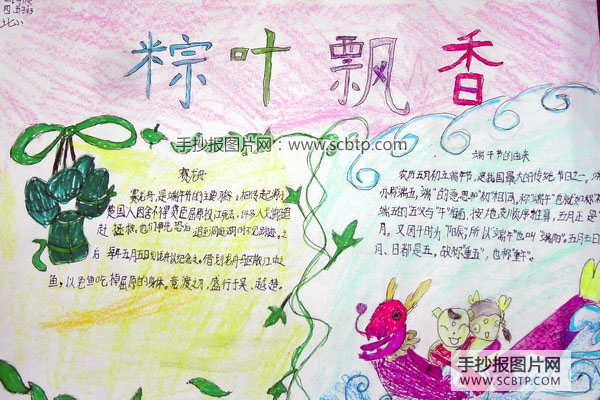 四五
粽叶飘香
手抄报图片网:www.scbtp.com
赛舟
赛龙舟,是端午节的主要习俗。相传起源于
楚国人因舍不得贤臣屈原投江死去,许多人划船追
赶拯救。他们争先恐后,追至洞庭湖时不见踪迹。之
后每年五月五日划龙舟以纪念之。借划龙舟驱散江中之
鱼,以免鱼吃掉屈原的身体。竞渡之习,盛行于吴、越、楚。
端午节的由来
农历五月初五端午节,是我国最大的传统节日之一。
亦称端五,"端"的意思和"初"相同,称"端午"也就如称初
端五的五字与"午"相通,按地支顺序推算,五月正是"
月。又因午时为"阳辰",所以端午也叫"端阳"。五月五日
月、日都是五,故称重五,也称重午。
手抄报图片网
WWW.SCBTP.COM